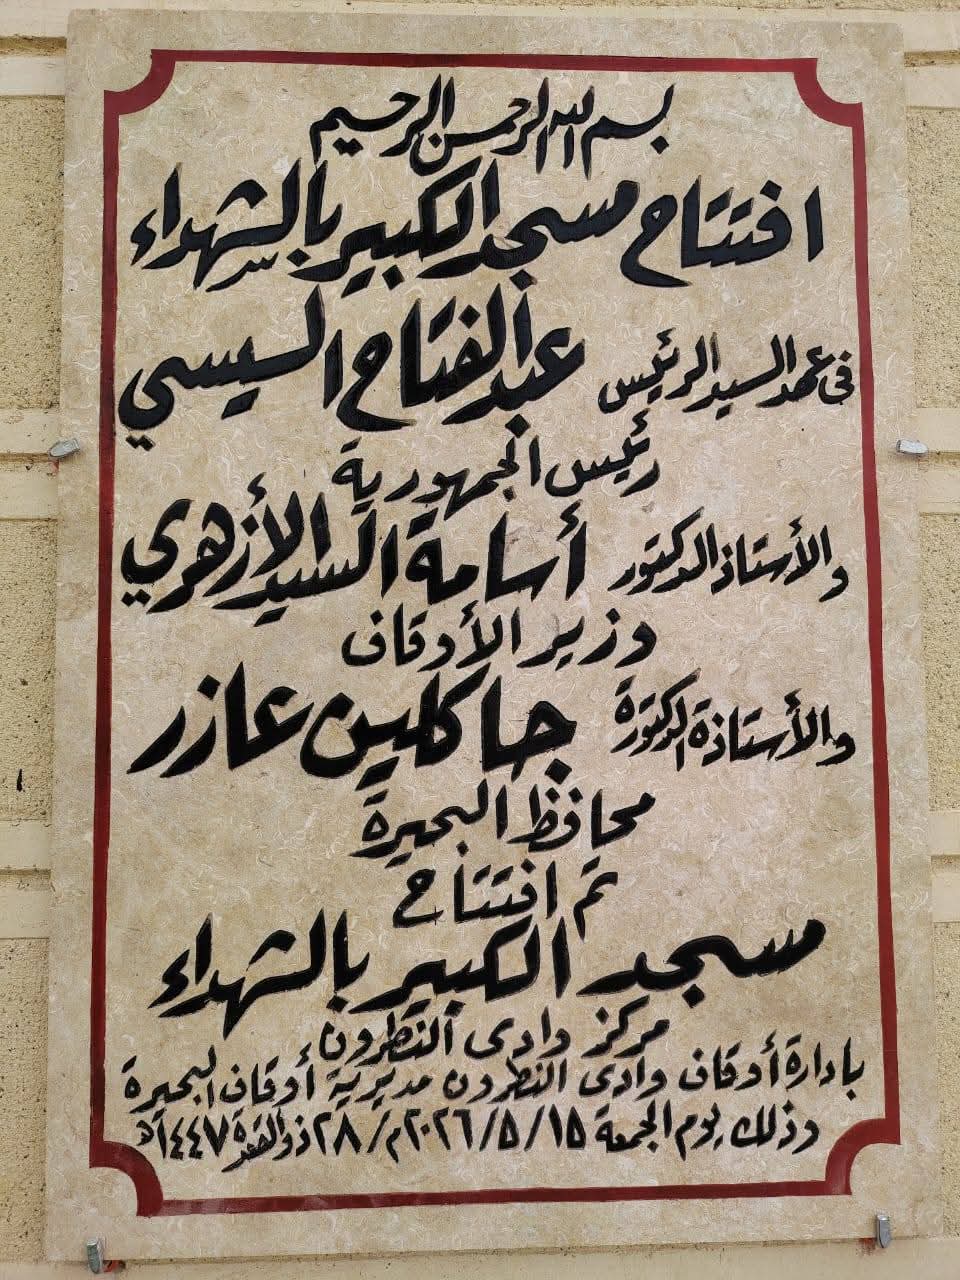 بسم الله الرحمن الرحيم
افتتاح مسجد الكبير بالشهداء
فى عهد السيد الرئيس عبد الفتاح السيسي
رئيس الجمهورية
والأستاذ الدكتور أسامة السيد الأزهري
وزير الأوقاف
والأستاذة الدكتورة جاكلين عازر
محافظ البحيرة
تم افتتاح
مسجد الكبير بالشهداء
مركز وادى النطرون
بادارة أوقاف وادى النطرون مديرية أوقاف البحيرة
وذلك يوم الجمعة ١٥/٥/٢٠٢٦م/ ٢٨ ذو القعدة ١٤٤٧هـ